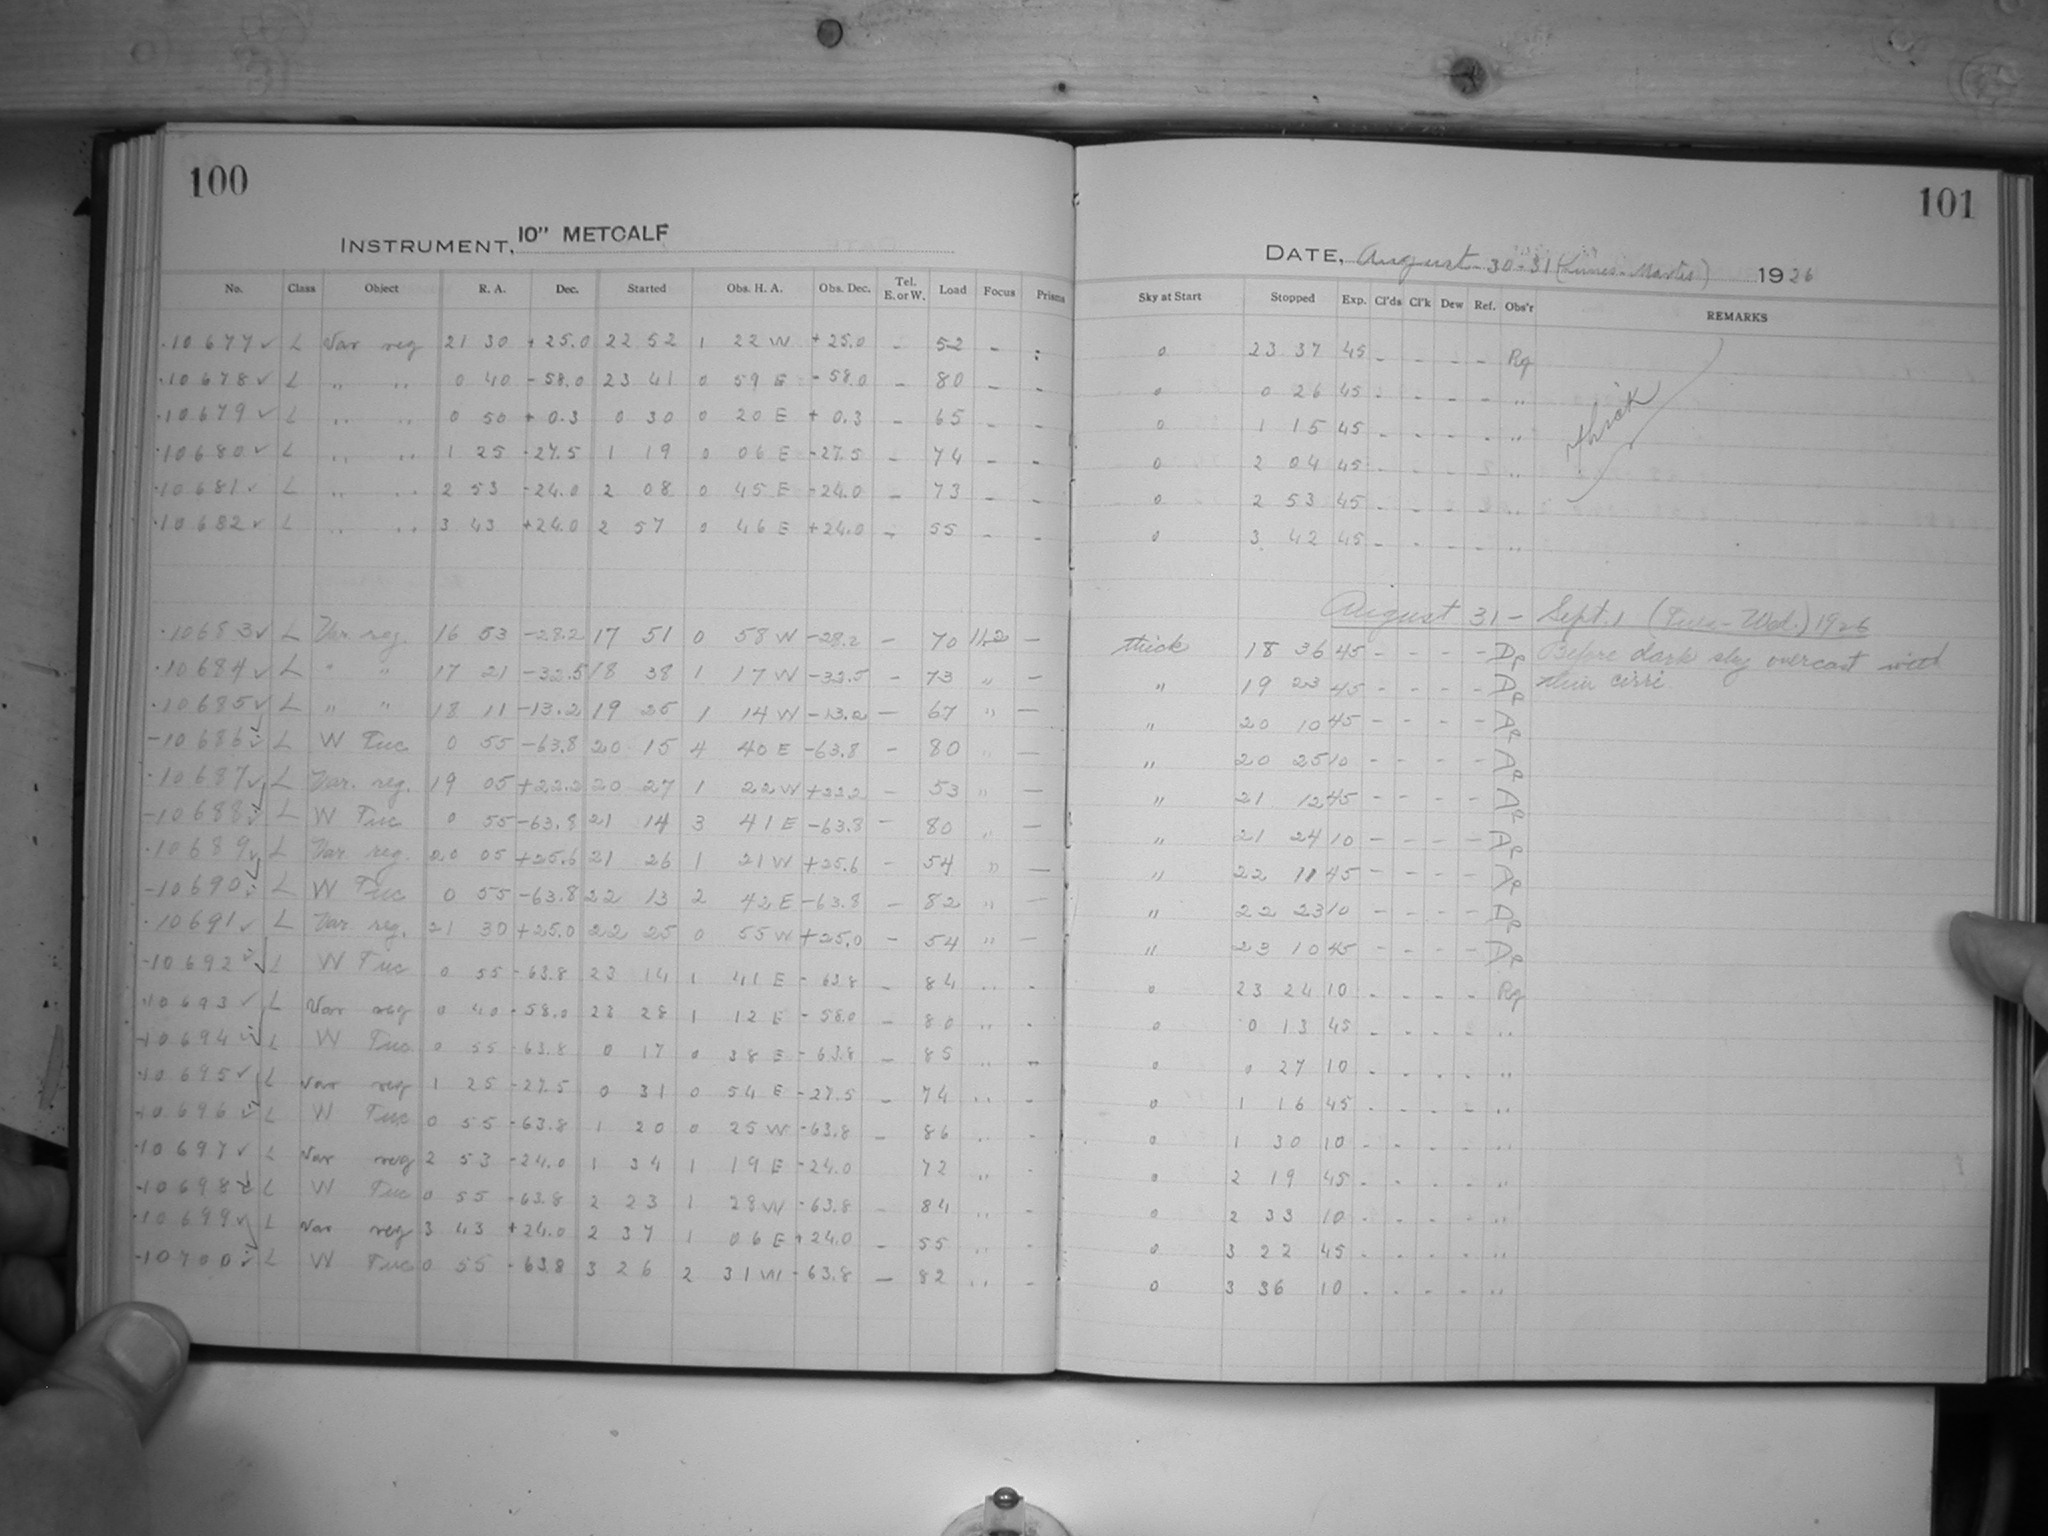 100
INSTRUMENT, 10" METCALF
No. Class Object R. A. Dec. Started Obs. H. A. Obs. Dec. Tel. E. or W. Load Focus Prisms
10677 ✓ L Var reg 21 30 +25.0 22 52 1 22 W +25.0 - 52 -
10678 ✓ L " " 0 40 -58.0 23 41 0 59 E -58.0 - 80 - -
10679 ✓ L " " 0 50 +0.3 0 30 0 20 E +0.3 - 65 - -
10680 ✓ L " " 1 25 -27.5 1 19 0 06 E -27.5 - 74 - -
10681 ✓ L " " 2 53 -24.0 2 08 0 45 E -24.0 - 73 - -
10682 ✓ L " " 3 43 +24.0 2 57 0 46 E +24.0 - 55 - -
10683 ✓ L Var. reg. 16 53 -28.2 17 51 0 58 W -28.2 - 70 11.2 -
10684 ✓ L " " 17 21 -32.5 18 38 1 17 W -32.5 - 73 " -
10685 ✓ L " " 18 11 -13.2 19 25 1 14 W -13.2 - 67 " -
10686 ✓ L W Tuc 0 55 -63.8 20 15 4 40 E -63.8 - 80 " -
10687 ✓ L Var. reg. 19 05 +22.2 20 27 1 22 W +22.2 - 53 " -
10688 ✓ L W Tuc 0 55 -63.8 21 14 3 41 E -63.8 - 80 " -
10689 ✓ L Var. reg. 20 05 +25.6 21 26 1 21 W +25.6 - 54 " -
10690 ✓ L W Tuc 0 55 -63.8 22 13 2 42 E -63.8 - 82 " -
10691 ✓ L Var. reg. 21 30 +25.0 22 25 0 55 W +25.0 - 54 " -
10692 ✓ L W Tuc 0 55 -63.8 23 14 1 41 E -63.8 - 84 " -
10693 ✓ L Var reg 0 40 -58.0 23 28 1 12 E -58.0 - 80 " -
10694 ✓ L W Tuc 0 55 -63.8 0 17 0 38 E -63.8 - 85 " -
10695 ✓ L Var reg 1 25 -27.5 0 31 0 54 E -27.5 - 74 " -
10696 ✓ L W Tuc 0 55 -63.8 1 20 0 25 W -63.8 - 86 " -
10697 ✓ L Var reg 2 53 -24.0 1 34 1 19 E -24.0 72 " -
10698 ✓ L W Tuc 0 55 -63.8 2 23 1 28 W -63.8 - 84 " -
10699 ✓ L Var reg 3 43 +24.0 2 37 1 06 E +24.0 - 55 " -
10700 ✓ L W Tuc 0 55 -63.8 3 26 2 31 W -63.8 - 82 " -
101
DATE, August 30-31 (Lunes-Martes) 1926
Sky at Start Stopped Exp. Cl'ds Cl'k Dew Ref. Obs'r REMARKS
0 23 37 45 - - - - Rg
0 0 26 45 - - - - "
0 1 15 45 - - - - "
thick
0 2 04 45 - - - "
0 2 53 45 - - - "
0 3 42 45 - - - - "
August 31 - Sept. 1 (Tues-Wed.) 1926
thick 18 36 45 - - - - Before dark sky overcast with
" 19 23 45 - - - - thin cirri
" 20 10 45 - - - -
" 20 25 10 - - - -
" 21 12 45 - - - -
" 21 24 10 - - - -
" 22 11 45 - - - -
" 22 23 10 - - - -
" 23 10 45 - - - -
0 23 24 10 - - - - Rg
0 0 13 45 - - - - "
0 0 27 10 - - - - "
0 1 16 45 - - - - "
0 1 30 10 - - - - "
0 2 19 45 - - - - "
0 2 33 10 - - - - "
0 3 22 45 - - - - "
0 3 36 10 - - - - "